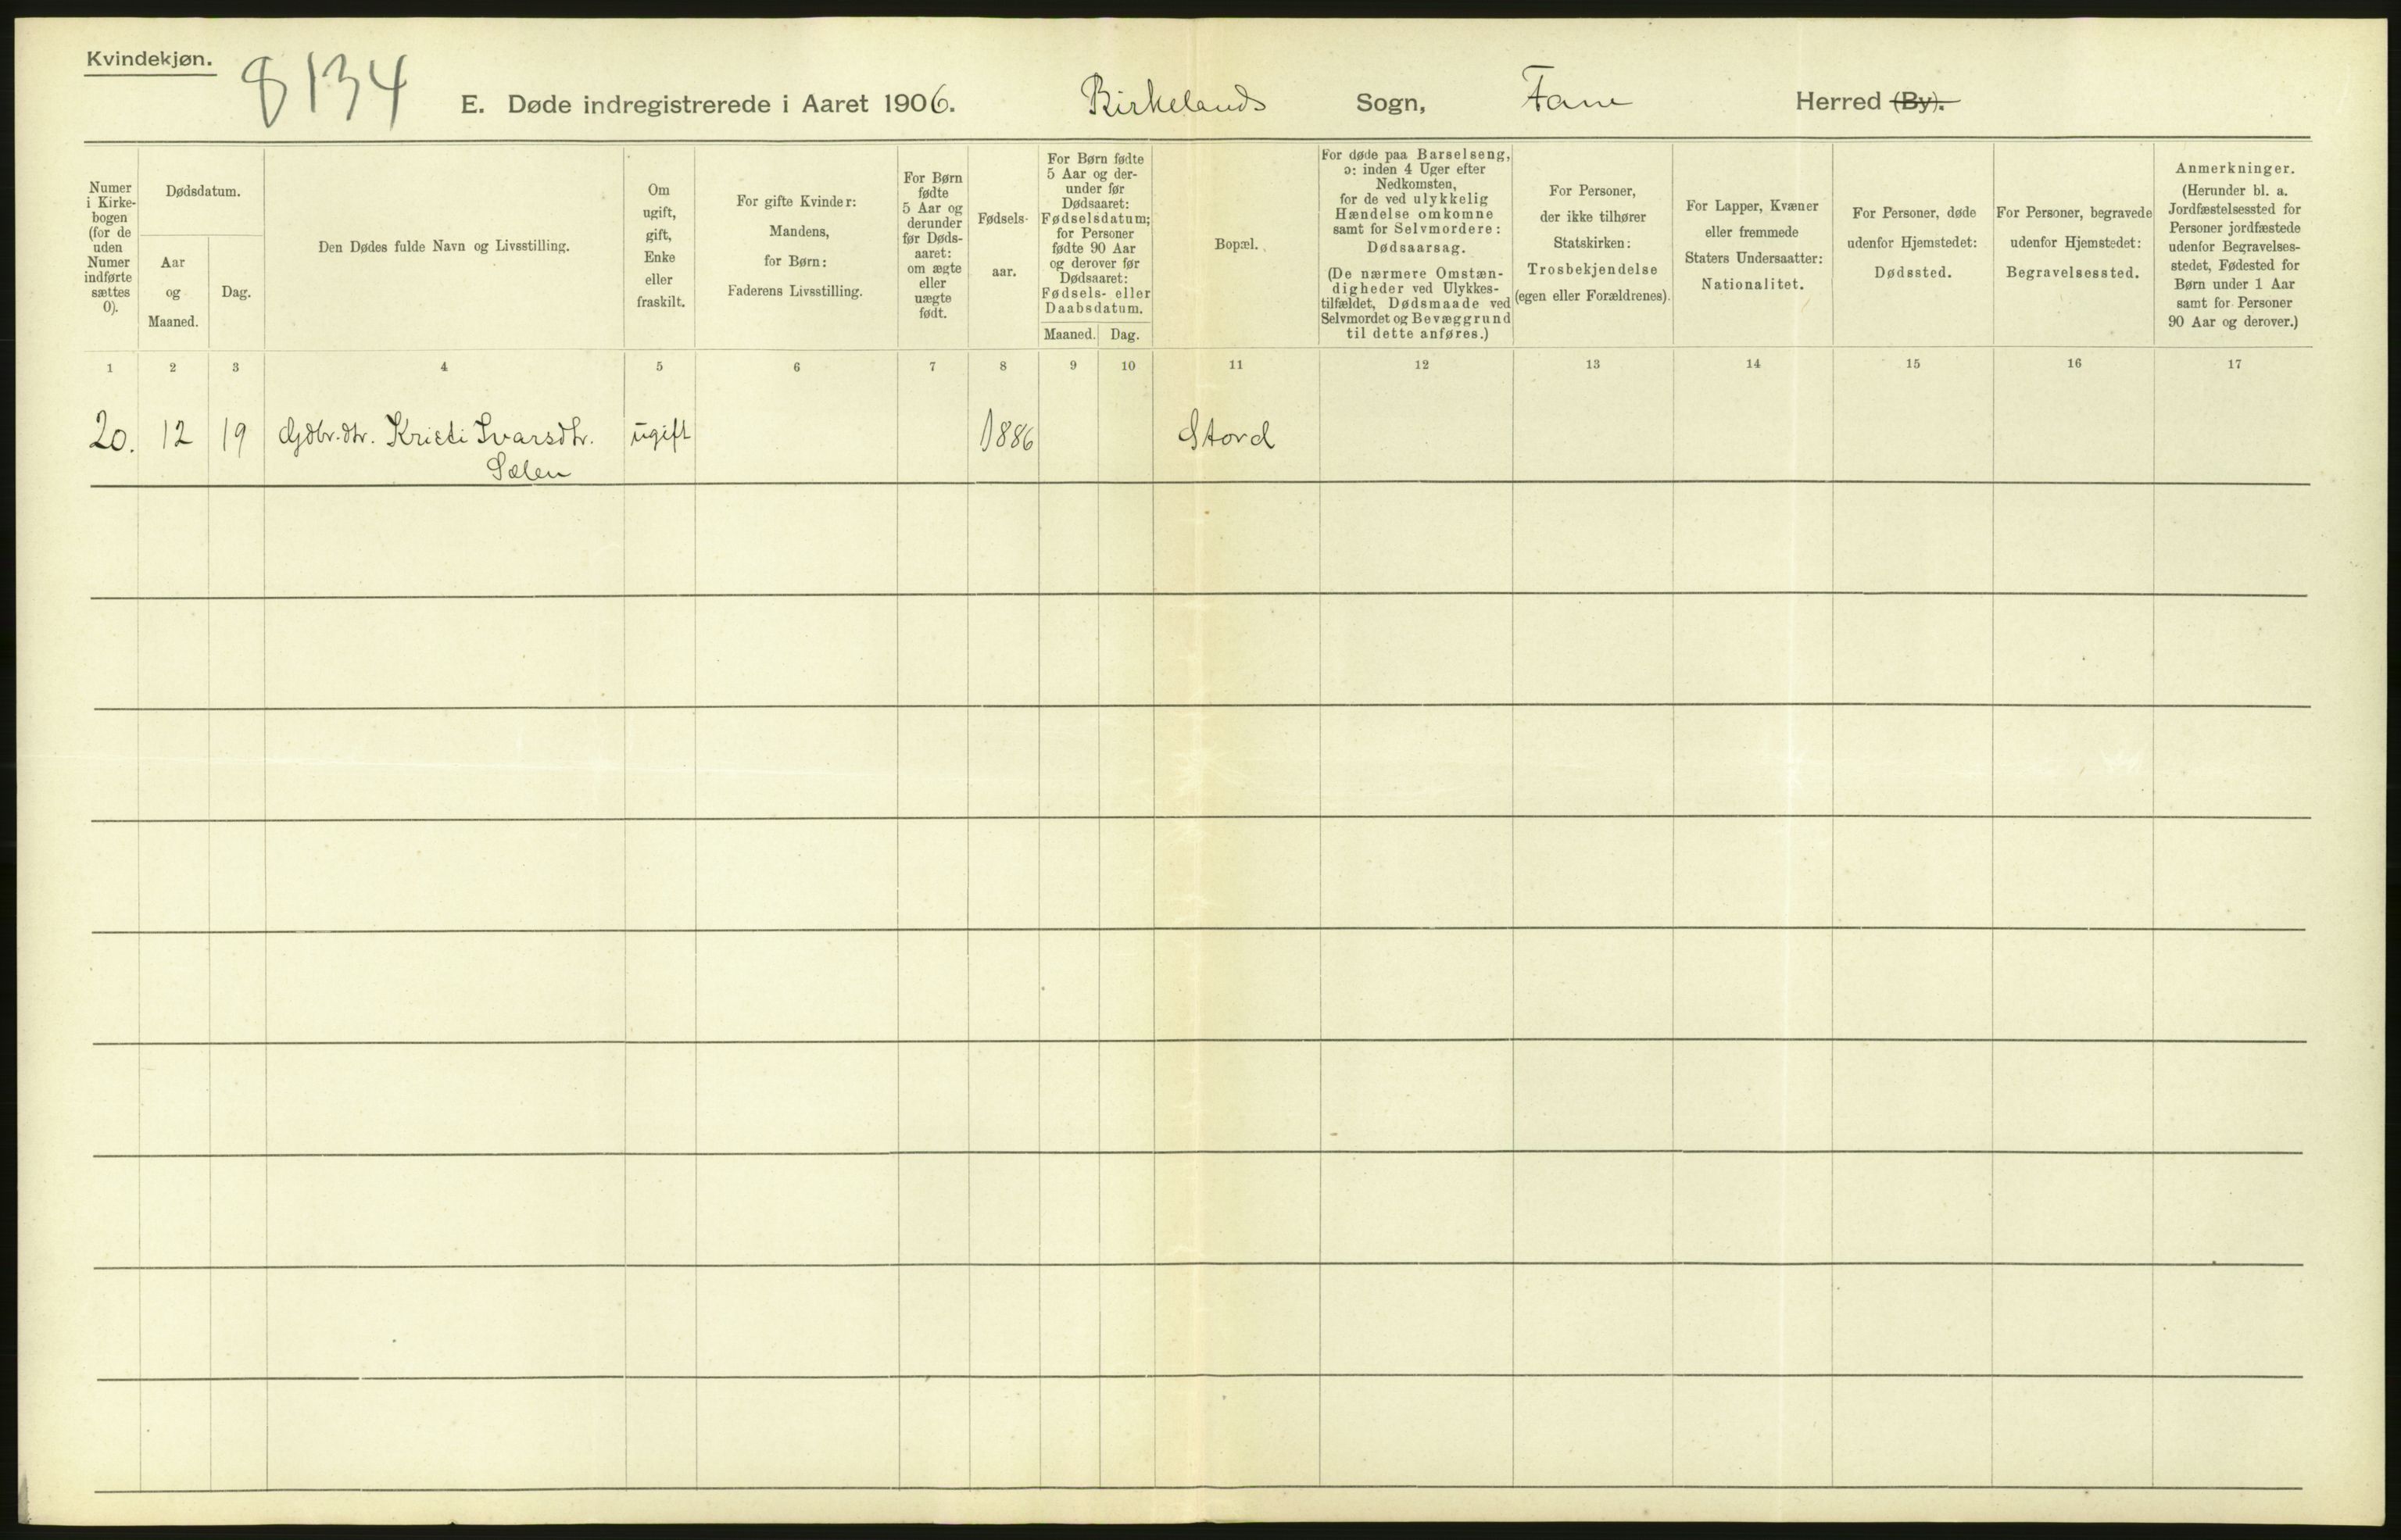 Kvindekjøn.
8134
E. Døde indregistrerede i Aaret 1906. Birkelands Sogn, Fane Herred (By).
Numer
i Kirke-
bogen
(for de
uden
Numer
indførte
sættes
0).
Dødsdatum.
Aar
og
Maaned.
Dag.
Den Dødes fulde Navn og Livsstilling.
Om
ugift,
gift,
Enke
eller
fraskilt.
For gifte Kvinder:
Mandens,
for Børn:
Faderens Livsstilling.
For Børn
fødte
5 Aar og
derunder
før Døds-
aaret:
om ægte
eller
uægte
født.
Fødsels-
aar.
For Børn fødte
5 Aar og der-
under før
Dødsaaret:
Fødselsdatum;
for Personer
fødte 90 Aar
og derover før
Dødsaaret:
Fødsels- eller
Daabsdatum.
Maaned.
Dag.
Bopæl.
For døde paa Barselseng,
ɔ: inden 4 Uger efter
Nedkomsten,
for de ved ulykkelig
Hændelse omkomne
samt for Selvmordere:
Dødsaarsag.
(De nærmere Omstæn-
digheder ved Ulykkes-
tilfældet, Dødsmaade ved
Selvmordet og Bevæggrund
til dette anføres.)
For Personer,
der ikke tilhører
Statskirken:
Trosbekjendelse
(egen eller Forældrenes).
For Lapper, Kvæner
eller fremmede
Staters Undersaatter:
Nationalitet.
For Personer, døde
udenfor Hjemstedet:
Dødssted.
For Personer, begravede
udenfor Hjemstedet:
Begravelsessted.
Anmerkninger.
(Herunder bl. a.
Jordfæstelsessted for
Personer jordfæstede
udenfor Begravelses-
stedet, Fødested for
Børn under 1 Aar
samt for Personer
90 Aar og derover.)
1 2 3 4 5 6 7 8 9 10 11 12 13 14 15 16 17
20. 12 19 Gdbr.dtr. Kristi Ivarsdtr. ugift 1886 Stord
Sælen